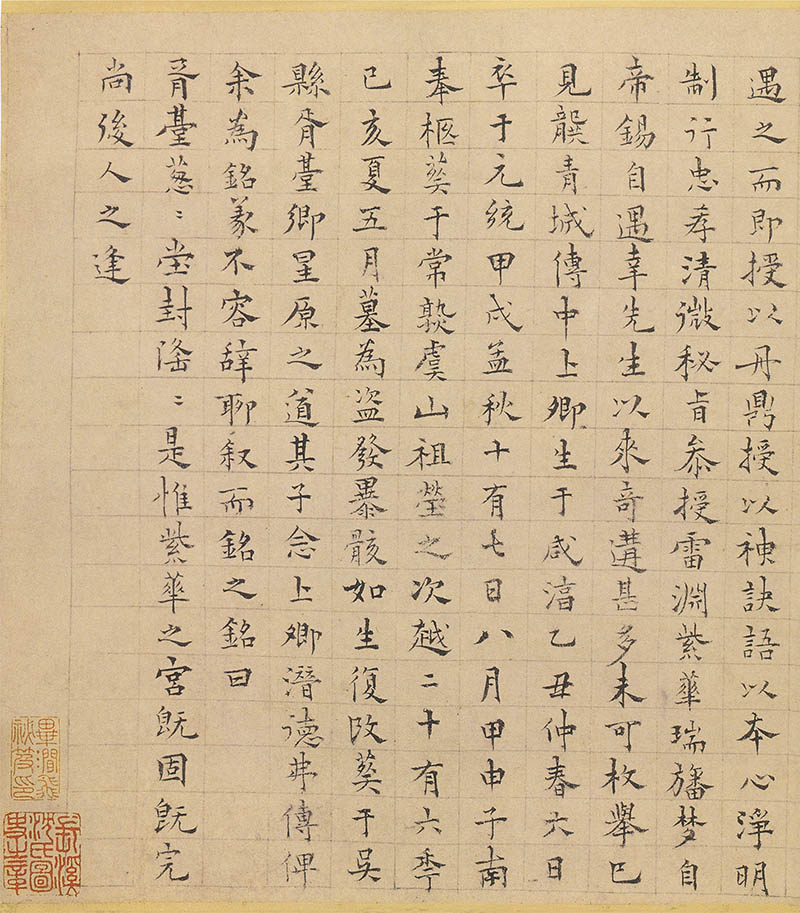 遇之而即授以丹鼎授以神訣語以本心淨明
制行忠孝清微秘旨叅授雷淵紫華瑞旛梦自
帝錫自遇幸先生以來奇遘甚多未可枚舉已
見龔青城傳中上卿生于咸淳乙丑仲春六日
卒于元統甲戌孟秋十有七日八月甲申子南
奉柩葬于常熟虞山祖塋之次越二十有六季
已亥夏五月墓為盗發暴骸如生復改葬于吳
縣胥臺鄉星原之道其子念上卿潛德弗傳俾
余為銘義不容辞聊叙而銘之銘曰
胥臺葱〻堂封隆〻是惟紫華之宮既固既完
尚後人之逢